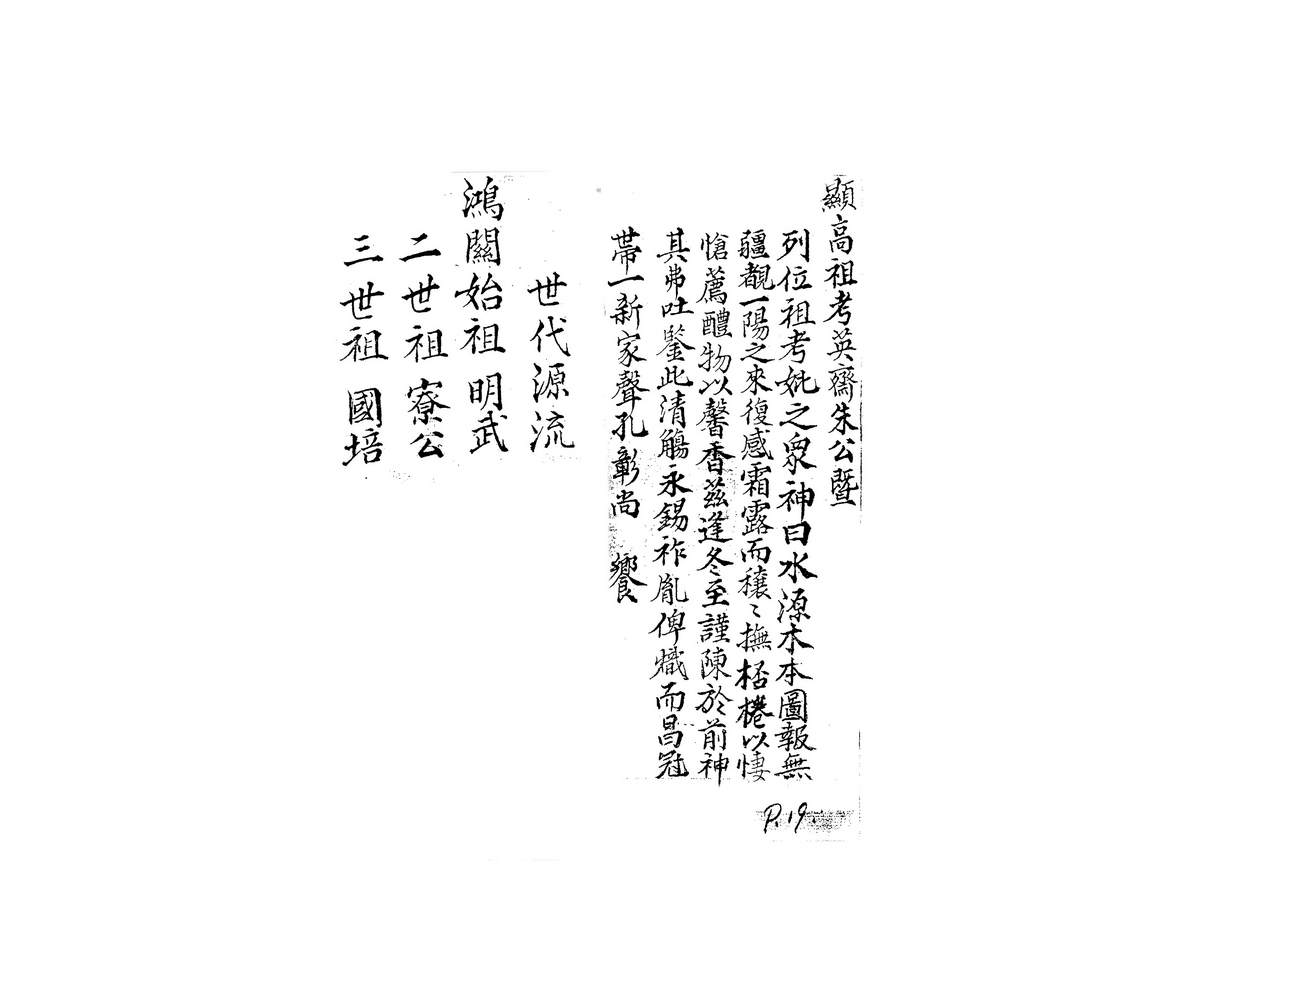 顯高祖考英齋朱公暨
列位祖考妣之衆神曰水源木本圖報無
疆覩一陽之來復感霜露而穰〻撫桮棬以悽
愴薦醴物以馨香茲逢冬至謹陳於前神
其弗吐鑒此清觴永錫祚胤俾熾而昌冠
帶一新家聲孔彰尚 饗
世代源流
鴻闗始祖 明武
二世祖 寮公
三世祖 國培
P.19.